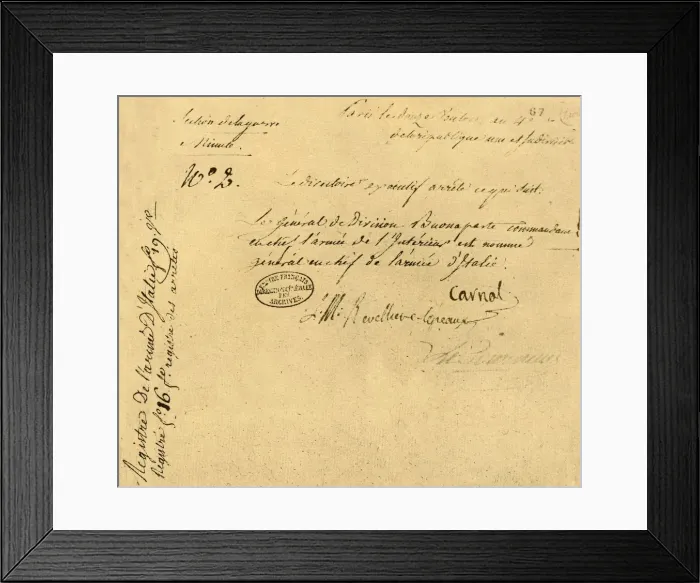 67
Paris le douze Ventose an 4e
Section de la guerre
de la république une et indivisible
Minute.
No. 2.
Le directoire executif arrête ce qui suit:
Le général de Division Buonaparte commandant
en chef l'armée de l'Intérieur est nommé
général en chef de l'armée d'Italie.
ARCHIVES
Carnot
L. M. Revelliere-Lepeaux
Registre De l'armée D'Italie fo. 19. Ve
Régistré fo. 16 registre des arrêtés